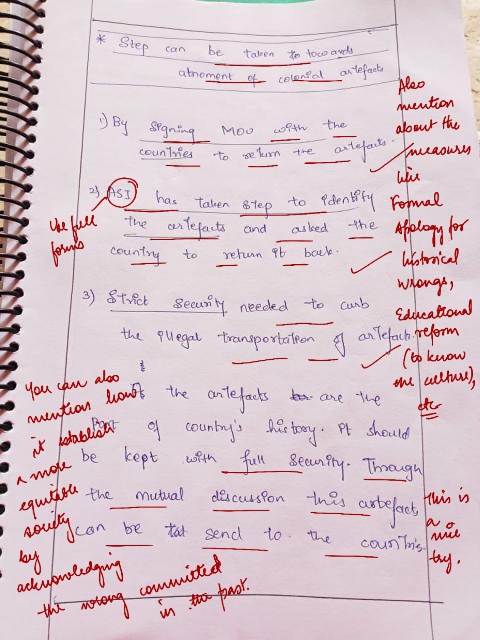 * Step can be taken to towards
atnoment of colonial artefacts
1) By signing MOU with the
countries to return the artefacts.
2) ASI has taken step to identify
the artefacts and asked the
country to return it back.
3) Strict Security needed to curb
the illegal transportation of artefact.
the artefacts are the
Part of country's history. It should
be kept with full Security. Through
the mutual discussion this artefact
can be send to the countries.
Also
mention
about the
measures
like
Formal
Apology for
historical
wrongs,
Educational
reform
(to know
one culture),
etc
Use full
forms
You can also
mention how
it establish
a more
equitable
society
by
acknowledging
the wrong committed
in the past.
This is
a
nice
try.